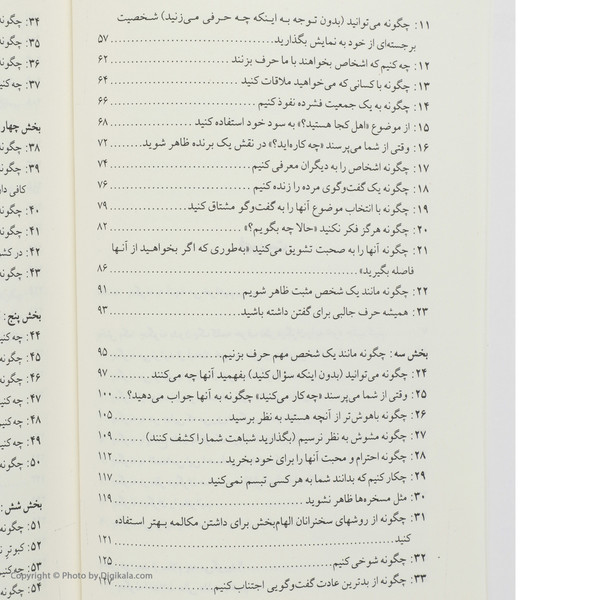 ۱۱: چگونه می‌توانید (بدون توجه به اینکه چه حرفی می‌زنید) شخصیت
برجسته‌ای از خود به نمایش بگذارید ۵۷
۱۲: چه کنیم که اشخاص بخواهند با ما حرف بزنند ۶۲
۱۳: چگونه با کسانی که می‌خواهید ملاقات کنید ۶۴
۱۴: چگونه به یک جمعیت فشرده نفوذ کنیم ۶۶
۱۵: از موضوع «اهل کجا هستید؟» به سود خود استفاده کنید ۶۸
۱۶: وقتی از شما می‌پرسند «چه کاره‌اید؟» در نقش یک برنده ظاهر شوید ۷۲
۱۷: چگونه اشخاص را به دیگران معرفی کنیم ۷۴
۱۸: چگونه یک گفت‌وگوی مرده را زنده کنیم ۷۶
۱۹: چگونه با انتخاب موضوع آنها را به گفت‌وگو مشتاق کنید ۷۹
۲۰: چگونه هرگز فکر نکنید «حالا چه بگویم؟» ۸۲
۲۱: چگونه آنها را به صحبت تشویق می‌کنید «به‌طوری که اگر بخواهید از آنها
فاصله بگیرید» ۸۶
۲۲: چگونه مانند یک شخص مثبت ظاهر شویم ۹۱
۲۳: همیشه حرف جالبی برای گفتن داشته باشید ۹۳
بخش سه: چگونه مانند یک شخص مهم حرف بزنیم ۹۵
۲۴: چگونه می‌توانید (بدون اینکه سؤال کنید) بفهمید آنها چه می‌کنند ۹۷
۲۵: وقتی از شما می‌پرسند «چه کار می‌کنید» چگونه به آنها جواب می‌دهید؟ ۱۰۰
۲۶: چگونه باهوش‌تر از آنچه هستید به نظر برسید ۱۰۵
۲۷: چگونه مشوش به نظر نرسیم (بگذارید شباهت شما را کشف کنند) ۱۰۹
۲۸: چگونه احترام و محبت آنها را برای خود بخرید ۱۱۲
۲۹: چکار کنیم که بدانند شما به هر کسی تبسم نمی‌کنید ۱۱۷
۳۰: مثل مسخره‌ها ظاهر نشوید ۱۱۹
۳۱: چگونه از روشهای سخنرانان الهام‌بخش برای داشتن مکالمه بهتر استفاده
کنید ۱۲۱
۳۲: چگونه شوخی کنیم ۱۲۵
۳۳: چگونه از بدترین عادت گفت‌وگویی اجتناب کنیم ۱۲۷
۳۴: چگونه
۳۵: چگونه
۳۶: چگونه
۳۷: چه کنیم
بخش چهار
۳۸: چگونه
۳۹: چگونه
کافی دا
۴۰: چگونه
۴۱: چگونه
۴۲: در کش
۴۳: چگونه
بخش پنج:
۴۴: چه کنید
۴۵: چگونه
۴۶: چگونه
۴۷: چه کنی
۴۸: چه کنی
۴۹: چه کنی
۵۰: چگونه
بخش شش:
۵۱: چگونه
۵۲: کبوتر
۵۳: چه کنیم
۵۴: چگونه
Copyright © Photo by Digikala.com